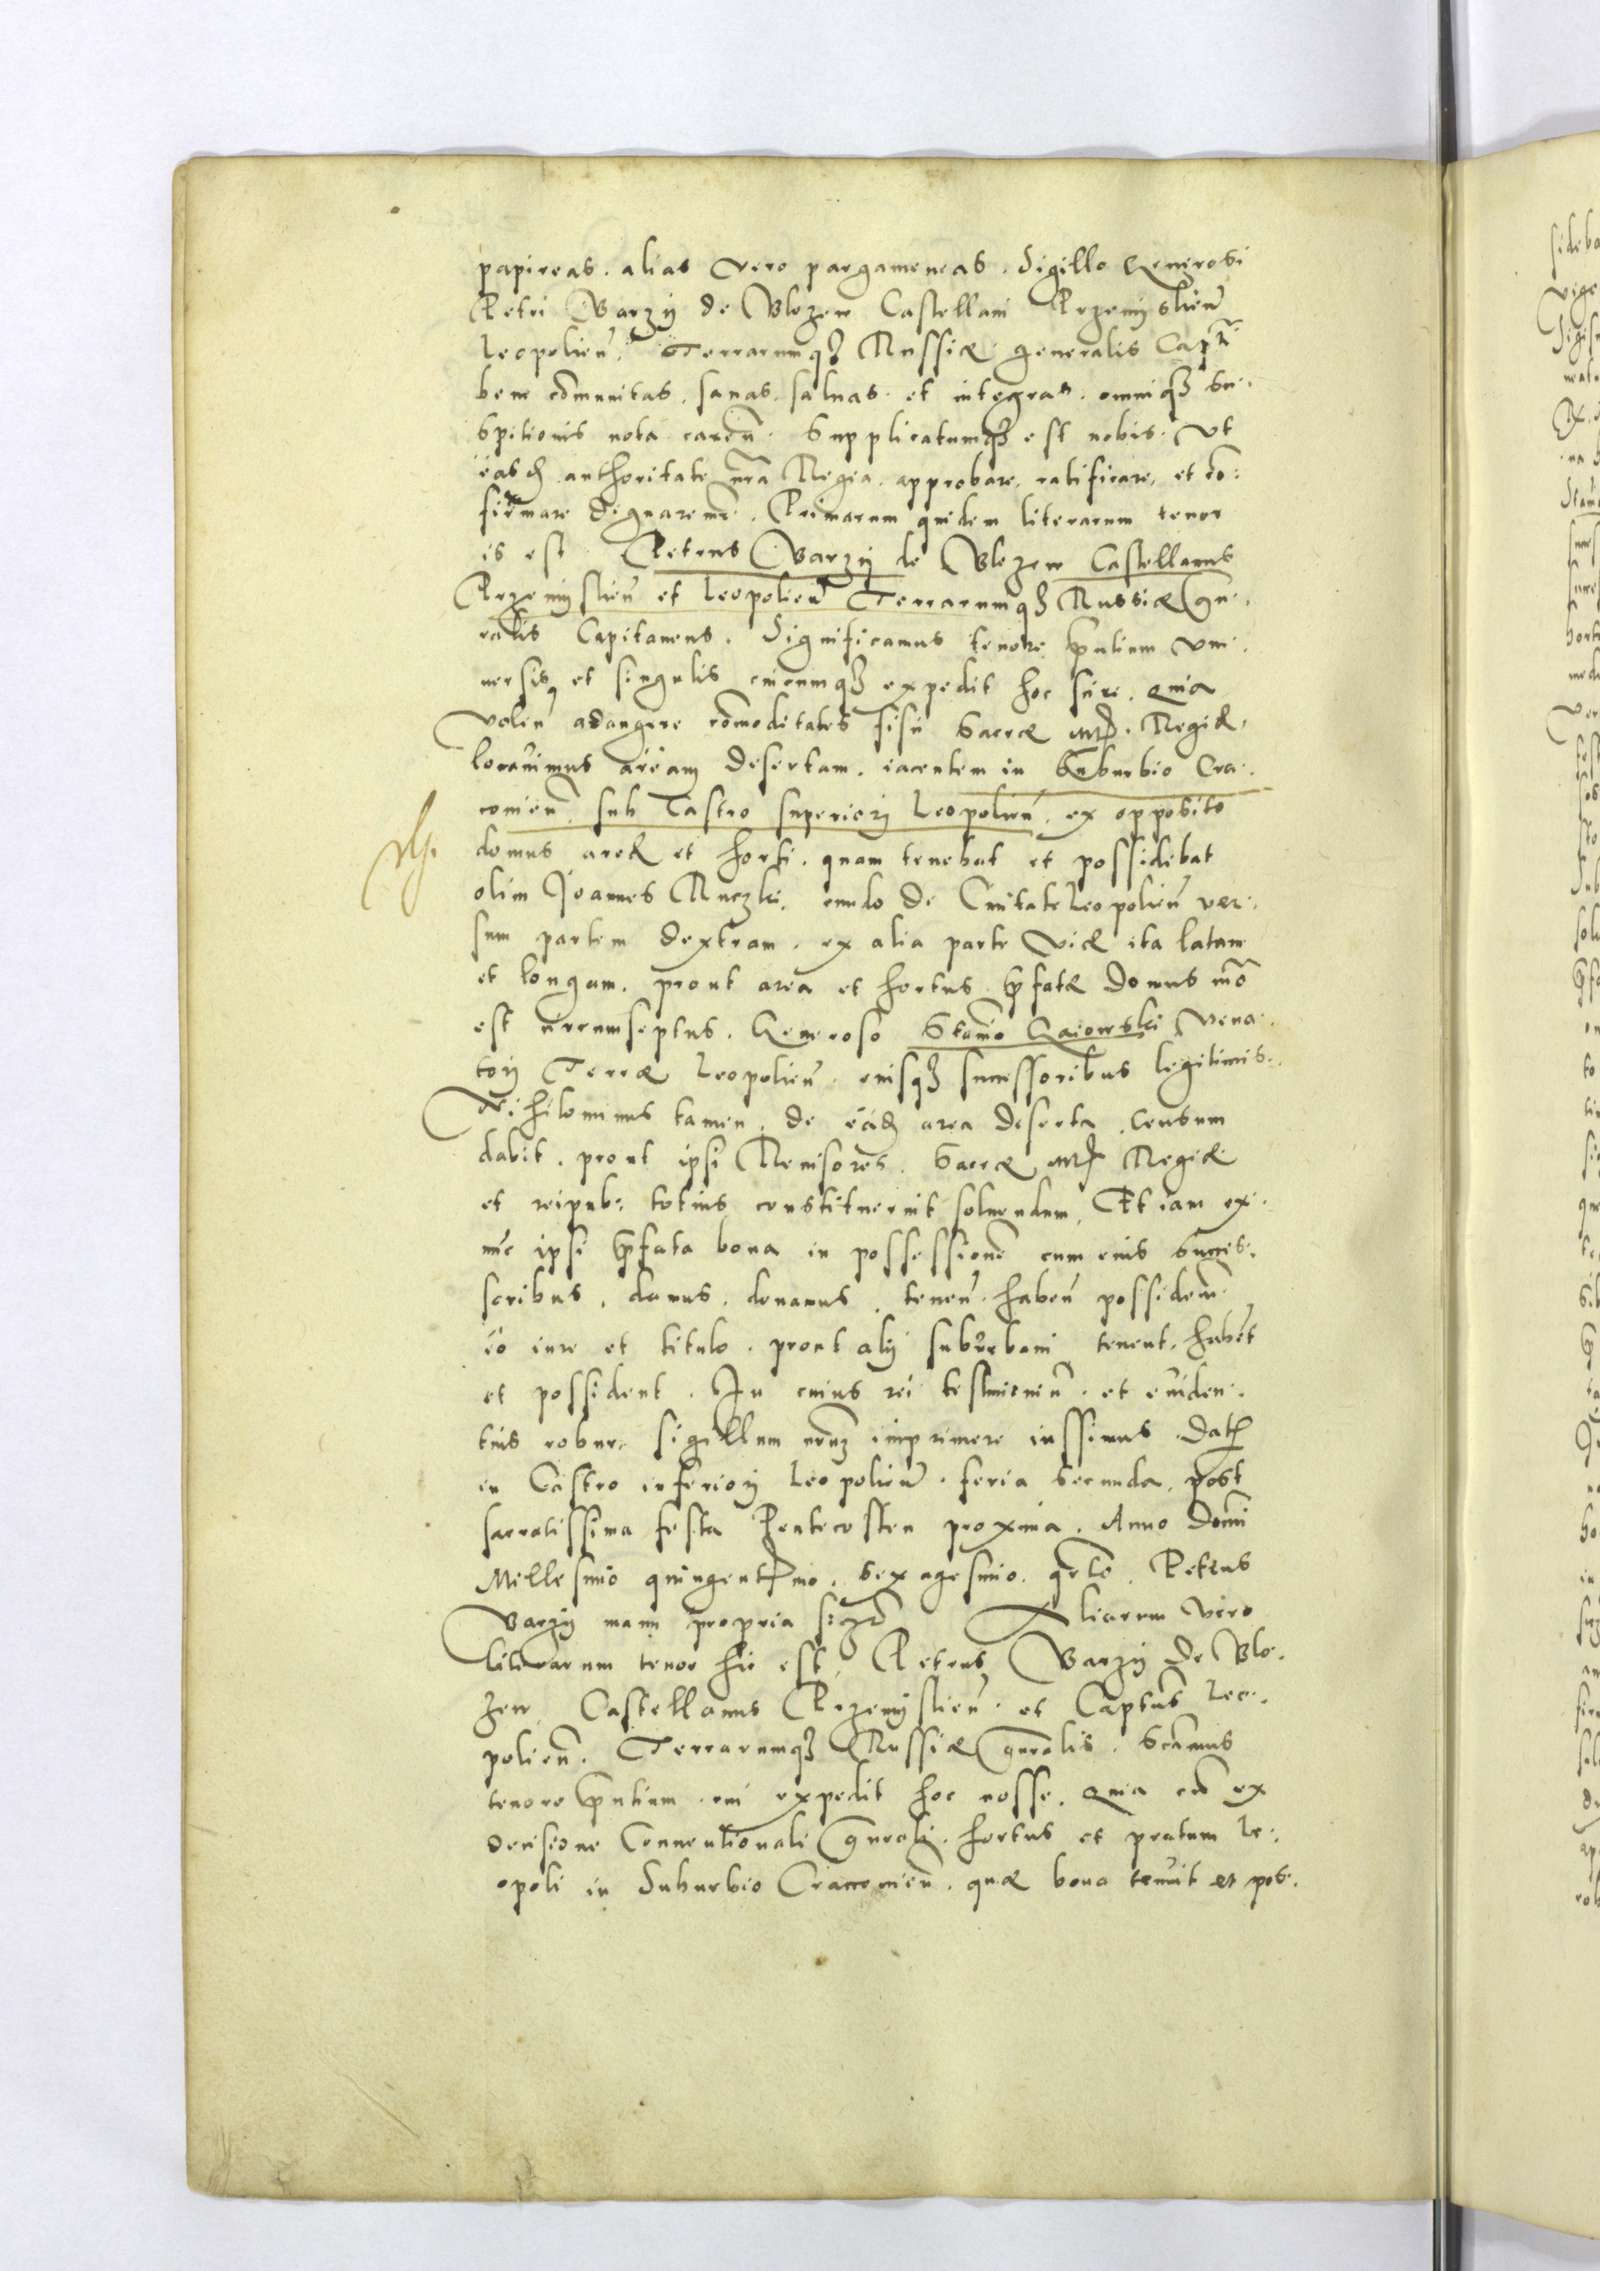 papireas. alias vero pargameneas. Sigillo Generosi
Petri Barzÿ de Blozew Castellani Przemÿslien̄
Leopolien̄. Terrarumq3 Russiæ generalis Capn̄i
bene cōmunitas, sanas, saluas. et integras. omniq3 su-
spitionis nota caren̄. Supplicatumq3 est nobis. vt
easd authoritate nr̄a Regia. approbare, ratificare, et cō-
firmare dignaremr̄. Primarum quidem literarum tenor
is est Petrus Barzÿ de Blozew Castellanus
Przemÿslien̄ et Leopolien̄ Terrarumq3 Russiæ gn̄e-
ralis Capitaneus. Significamus tenore pn̄tium vni-
uersis, et singulis cuicumq3 expedit hoc scire. Quia
volen̄ adaugere cōmoditates fisci Sacræ Mtis. Regiæ.
locauimus aream desertam. iacentem in Suburbio Cra-
couien̄ sub Castro superiori Leopolien̄. ex opposito
domus areæ et horti. quam tenebat et possidebat
olim Joannes Ruczki. eundo de Ciuitate Leopolien̄ ver-
sum partem dextram. ex alia parte viæ ita latam
et longam. prout area et hortus pfatæ domus mō
est circumseptus. Generoso Stan̄o Gaiowski Vena-
tori Terræ Leopolien̄. eiusq3 successoribus legitimis.
Nihilominus tamen. de ead area deserta. censum
dabit. prout ipsi Reuisores. Sacræ Mtis Regiæ
et reipub: totius constituerint soluendum. Et iam ex
nūc ipsi pfata bona in possessionē cum eius succes-
soribus. damus. donamus. tenen̄. haben̄ possiden̄.
eo iure et titulo. prout alÿ suburbani tenent. habēt
et possident. In cuius rei testimoniū. et euiden-
tius robur. sigillum nr̄um imprimere iussimus. Dat
in Castro inferiori Leopolien̄. feria secunda. post
sacratissima festa Pentecosten proxima. Anno Domi
Millesimo quingentmo. sexagesimo. qrto. Petrus
Barzÿ manu propria sszt Aliarum vero
literarum tenor hic est. Petrus Barzÿ de Blo-
zew Castellanus Przemÿslien̄. et Captn̄s Leo-
polien̄. Terrarumq3 Russiæ gn̄ralis. Scimus
tenore pn̄tium. cui expedit hoc nosse. Quia cū ex
decisione Conuentionali gn̄rali. hortus et pratum Le-
opoli in Suburbio Craccouien̄. quæ bona tenuit et pos-